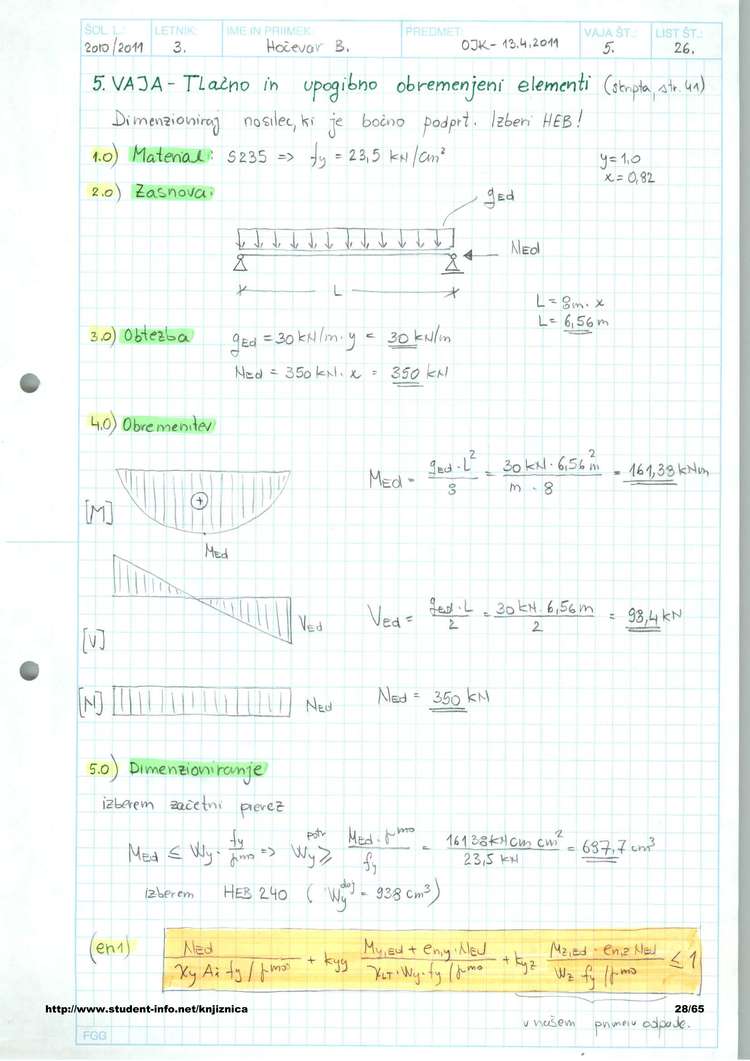 ŠOL. L.: LETNIK: IME IN PRIIMEK: PREDMET: VAJA ŠT.: LIST ŠT.:
2010/2011 3. Hočevar B. OJK - 13.4.2011 5. 26.
5. VAJA - Tlačno in upogibno obremenjeni elementi (skripta, str. 41)
Dimenzioniraj nosilec, ki je bočno podprt. Izberi HEB!
1.0) Material: S235 => fy = 23,5 kN/cm²
y = 1,0
x = 0,82
2.0) Zasnova:
gEd
NEd
L
L = 8m · x
L = 6,56 m
3.0) Obtežba gEd = 30 kN/m · y = 30 kN/m
NEd = 350 kN · x = 350 kN
4.0) Obremenitev
[M] MEd
MEd = gEd · L² / 8 = 30 kN · 6,56² m / m · 8 = 161,38 kNm
[V] VEd
VEd = gEd · L / 2 = 30 kN · 6,56 m / 2 = 98,4 kN
[N] NEd
NEd = 350 kN
5.0) Dimenzioniranje
izberem začetni prerez
MEd ≤ Wy · fy / γm0 => Wy potr ≥ MEd · γm0 / fy = 16138 kN cm cm² / 23,5 kN = 687,7 cm³
izberem HEB 240 (Wy dej = 938 cm³)
(en1) NEd / χy Ai fy / γm01 + kyy My,Ed + en,y · NEd / χLT · Wy · fy / γm0 + kyz Mz,Ed · en,z NEd / Wz fy / γm0 ≤ 1
http://www.student-info.net/knjiznica 28/65
v našem primeru odpade.
FGG